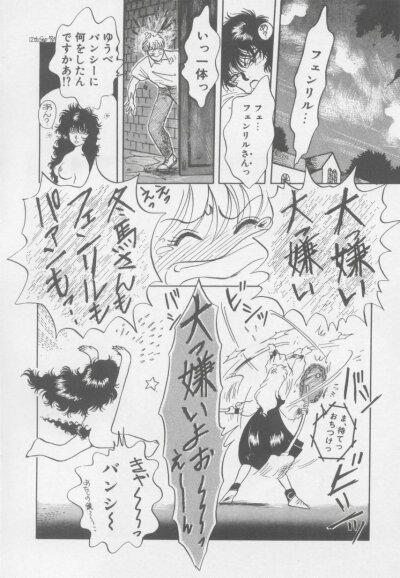 フェンリル…
フェ…
フェンリルさんっ
いっ一体っ
ゆうべ
バンシーに
何をしたん
ですかあ!?
あん?
大ッ嫌い
大ッ嫌い
えっ
えっ
冬馬さんも
フェンリルも
パァンも…
ビ
ヒ
ヒ
大ッ嫌いよお〜〜〜〜っ
えーーん
ま、待てっ
おちつけっ
きゃ〜〜〜っ
バンシ〜
11